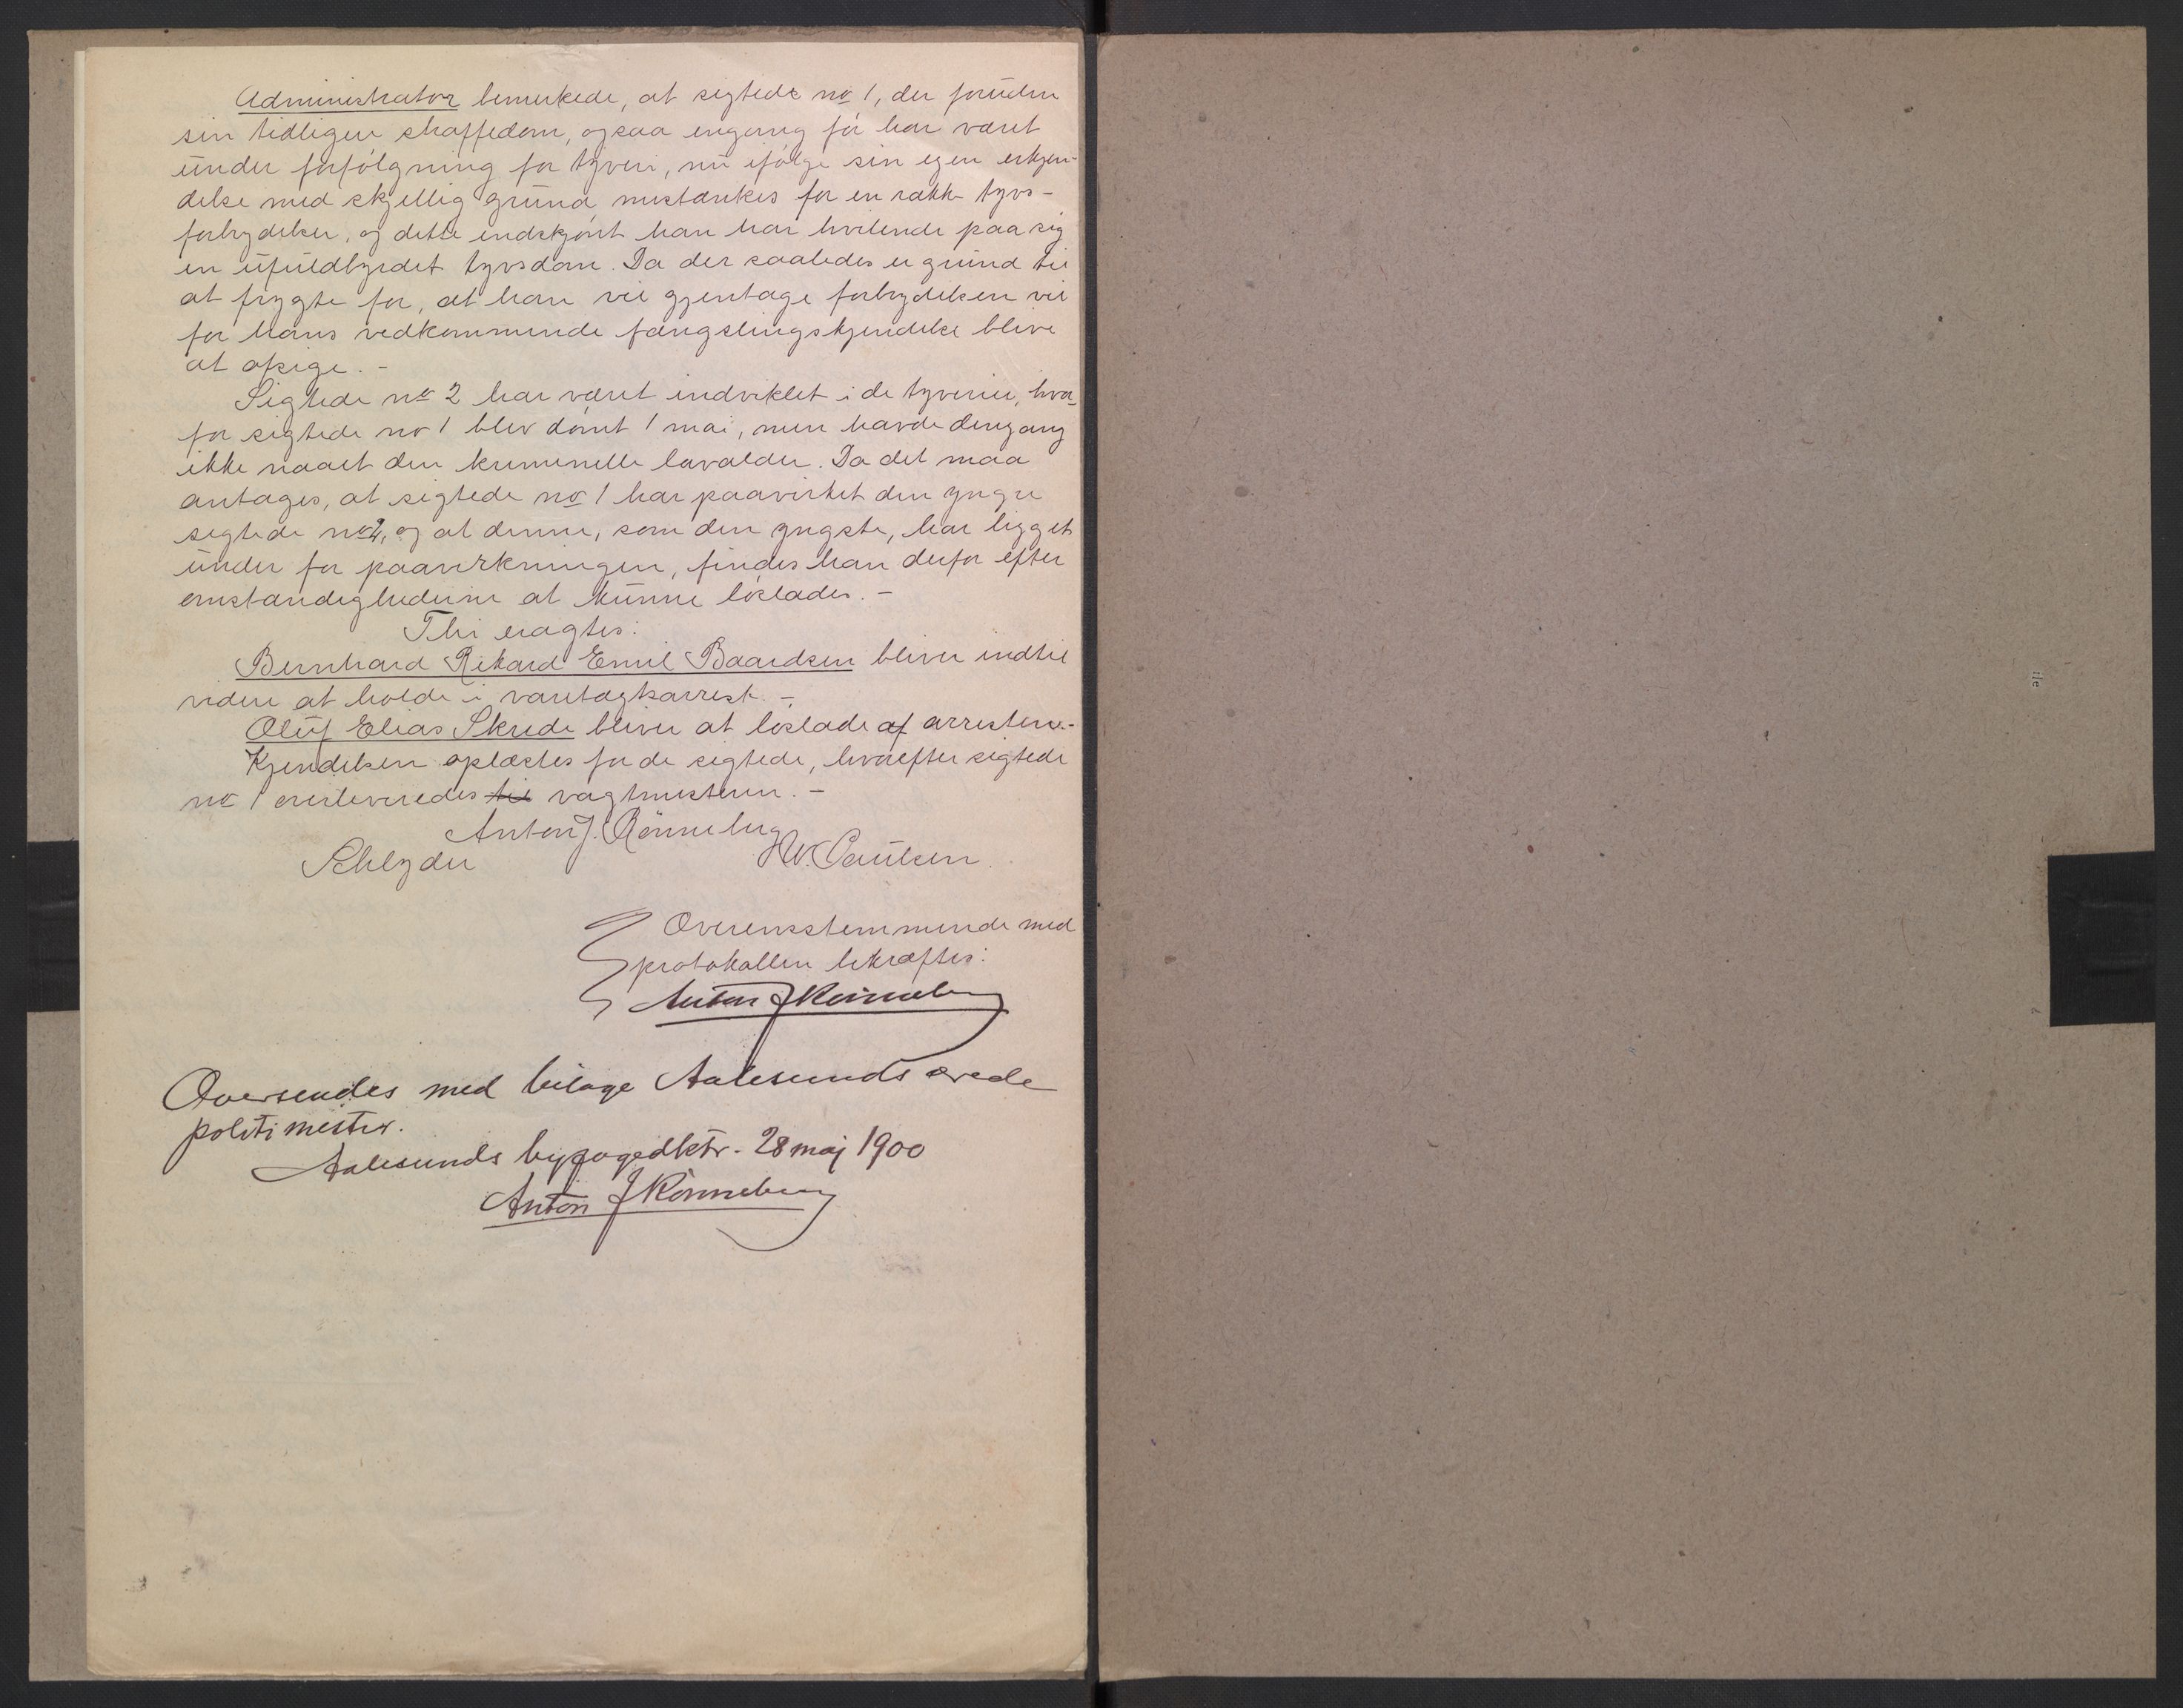 Administrator bemerkede, at sigtede no 1, der foruden
sin tidligere straffedom, ogsaa engang før har været
under forfølgning for tyveri, nu ifølge sin egen erkjen-
delse med skjellig grund mistænkes for en række tyvs-
forbrydelser, og dette endskjønt han har hvilende paa sig
en ufuldbyrdet tyvsdom. Da der saaledes er grund til
at frygte for, at han vil gjentage forbrydelsen vil
for hans vedkommende fængslingskjendelse blive
at afsige. -
Sigtede no 2 har været indviklet i de tyverier, hvor-
for sigtede no 1 blev dømt 1 mai, men havde dengang
ikke naaet den kriminelle lavalder. Da det maa
antages, at sigtede no 1 har paavirket den yngre
sigtede no 2, og at denne, som den yngste, har ligget
under for paavirkningen, findes han derfor efter
omstændighederne at kunne løslades. -
Thi eragtes:
Bernhard Rikard Emil Baardsen bliver indtil
videre at holde i varetægtsarrest. -
Oluf Elias Skrede bliver at løslade af arresten. -
Kjendelsen oplæstes for de sigtede, hvorefter sigtede
no 1 overleveredes til vagtmesteren. -
Anton J. Rönneberg
Schlyder W. Paulsen.
Overensstemmende med
protokollen bekræftes:
Anton J Rönneberg
Oversendes med bilage Aalesunds ærede
politimester.
Aalesunds byfogedktr. 28 maj 1900
Anton J Rönneberg